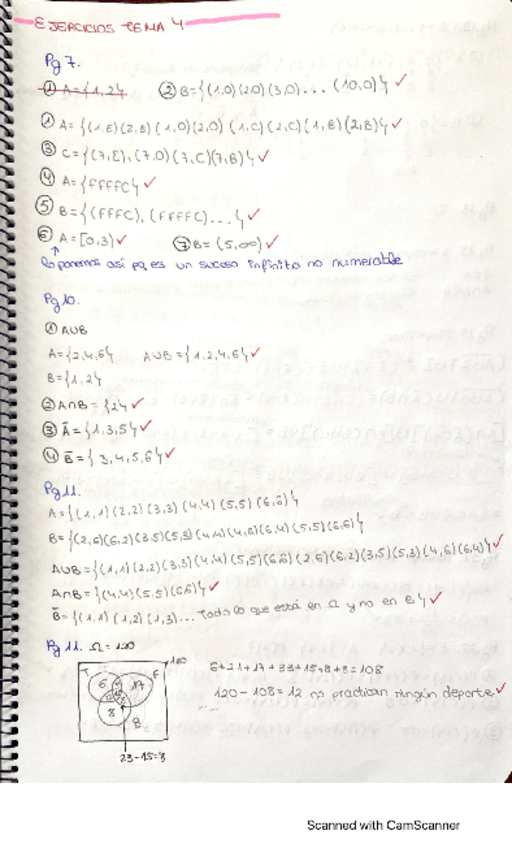 EJERCICIOS TEMA 4
Pg 7.
① A={1,2} ② B={(1,0)(2,0)(3,0)... (10,0)} ✓
① A={(1,E)(2,E)(1,0)(2,0)(1,C)(2,C)(1,B)(2,B)} ✓
③ C={(7,E),(7,0)(7,C)(7,B)} ✓
④ A={FFFFC} ✓
⑤ B={(FFFC),(FFFFC)...} ✓
⑥ A=[0,3) ✓ ⑦ B=(5,∞) ✓
lo ponemos así pq es un suceso infinito no numerable
Pg 10.
① A∪B
A={2,4,6} A∪B={1,2,4,6} ✓
B={1,2}
② A∩B={2} ✓
③ Ā={1,3,5} ✓
④ B̄={3,4,5,6} ✓
Pg 11.
A={(1,1)(2,2)(3,3)(4,4)(5,5)(6,6)}
B={(2,6)(6,2)(3,5)(5,3)(4,4)(4,6)(6,4)(5,5)(6,6)}
A∪B={(1,1)(2,2)(3,3)(4,4)(5,5)(6,6)(2,6)(6,2)(3,5)(5,3)(4,6)(6,4)} ✓
A∩B={(4,4)(5,5)(6,6)} ✓
B̄={(1,1)(1,2)(1,3)... Todo lo que está en Ω y no en B} ✓
Pg 11. Ω=120
T F 120
6 17
8 B
6+21+17+33+15+8+8=108
120-108=12 no practican ningún deporte ✓
23-15=8
Scanned with CamScanner